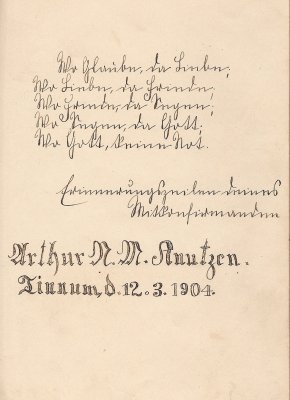 Wo Glaube, da Liebe;
Wo Liebe, da Friede;
Wo Friede, da Segen;
Wo Segen, da Gott;
Wo Gott, keine Not.
Erinnerungszeilen deines
Mitkonfirmanden
Arthur N. M. Knutzen.
Tinnum, d. 12. 3. 1904.